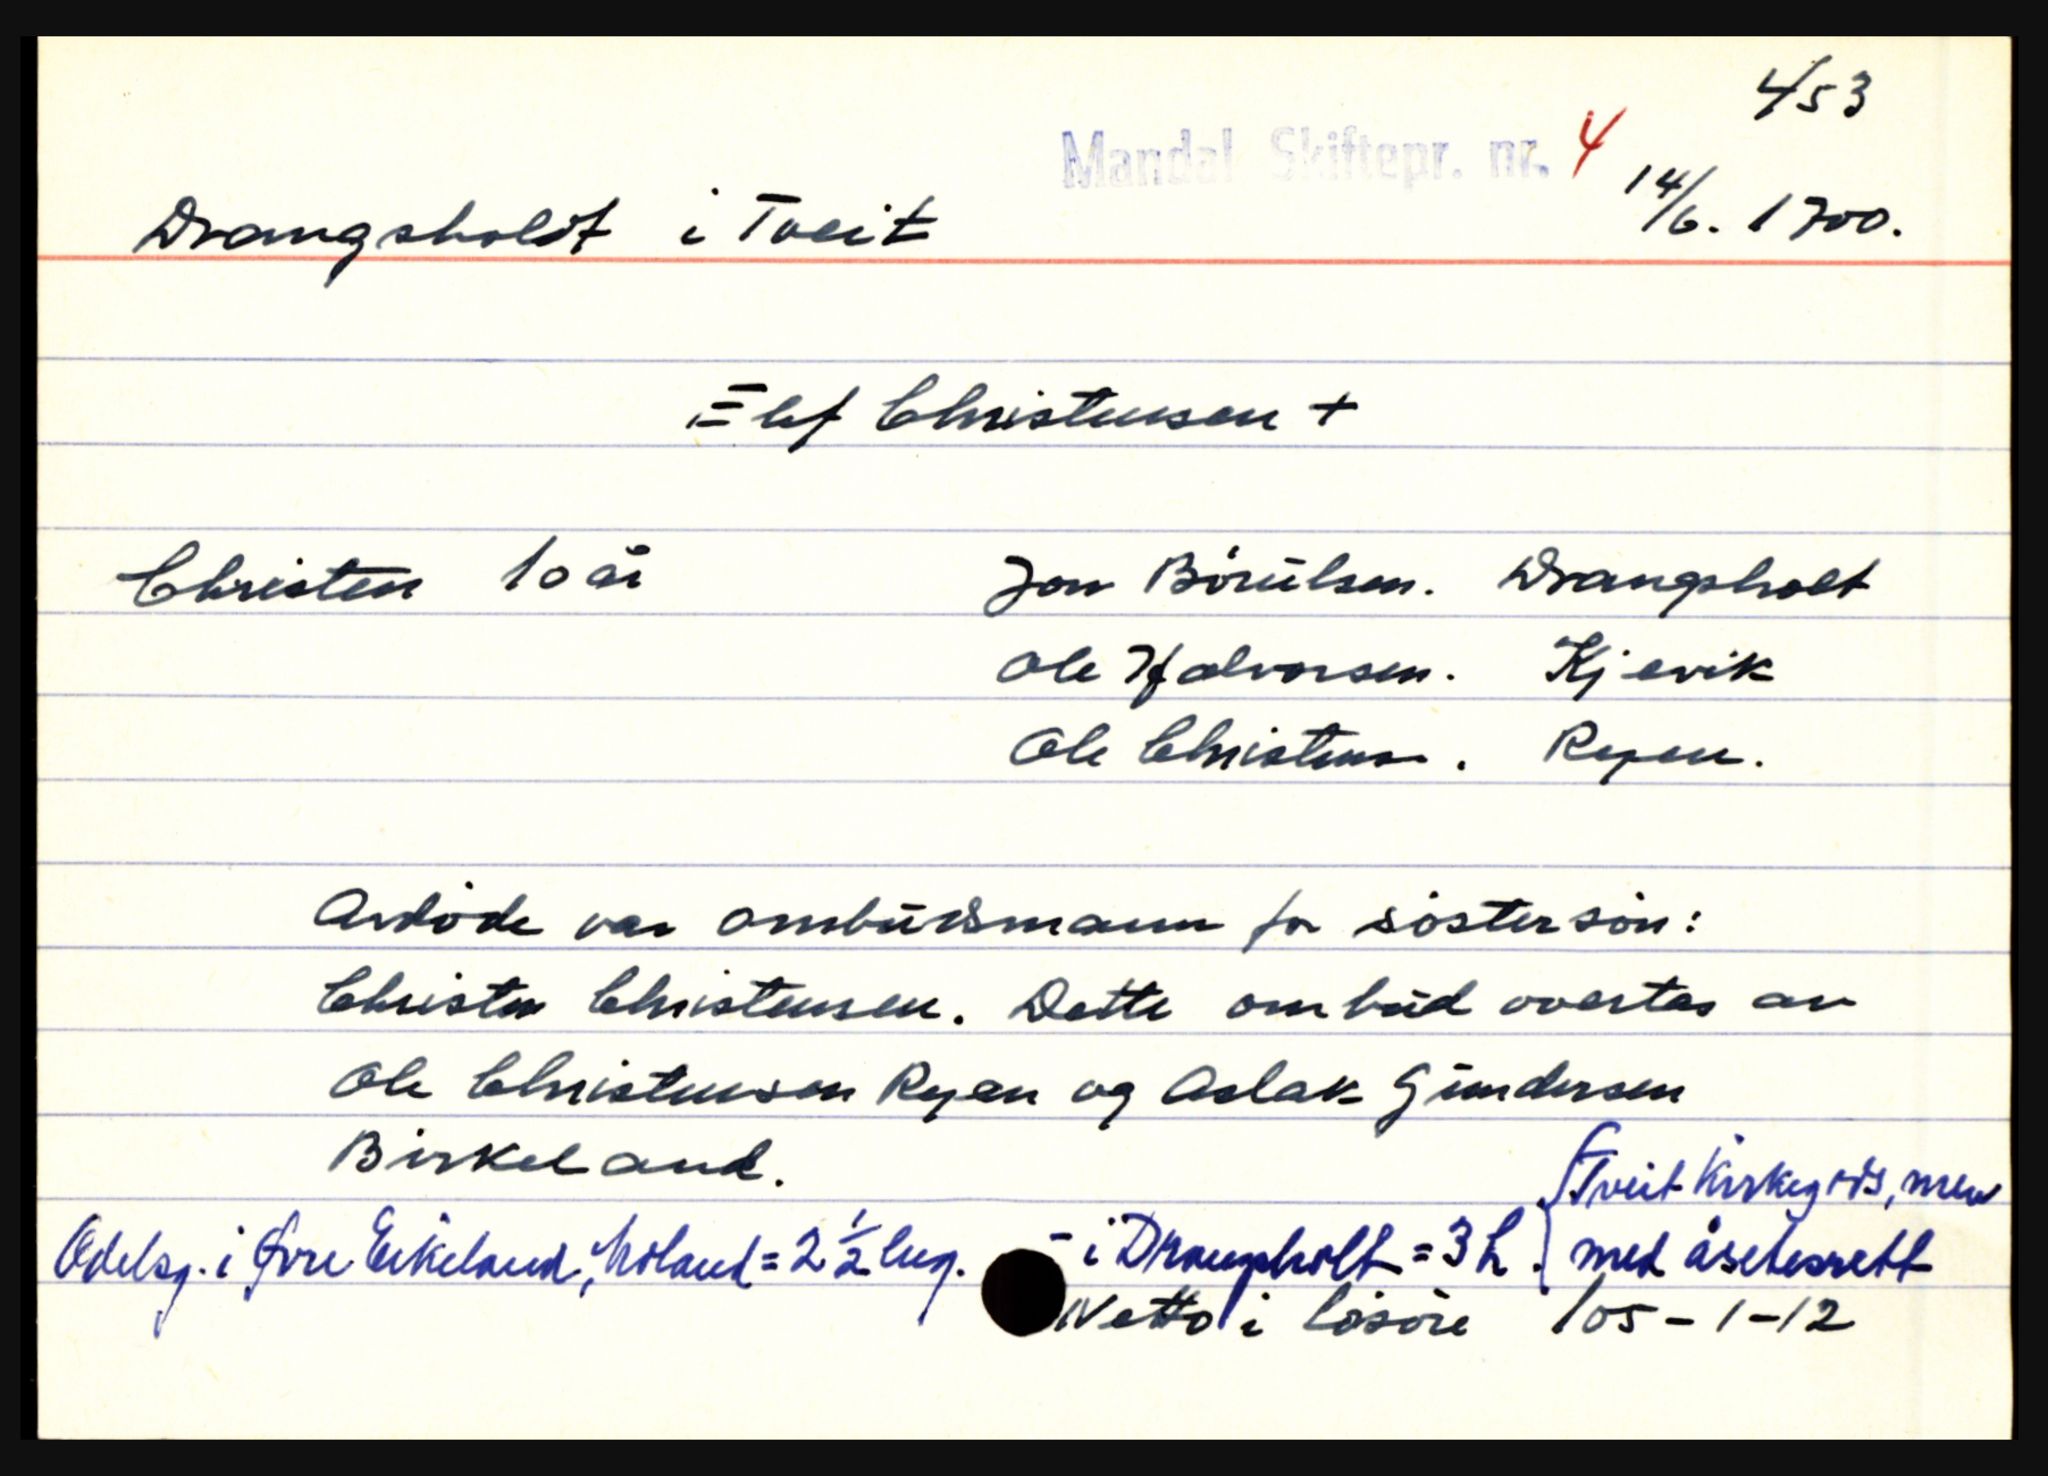 453
Mandal Skiftepr. nr. 4
14/6. 1700.
Drangsholdt i Tveit
Elef Christensen +
Christen 10 år
Jon Börülsen. Drangsholt
Ole Halvorsen. Kjevik
Ole Christensen. Ryen.
Avdöde var ombüdsmann for söstersön:
Christen Christensen. Dette ombüd overtas av
Ole Christensen Ryen og Aslak Gündersen
Birkeland.
Tveit Kirkegods, men
Odelsg. i Øvre Eikeland, = 2 1/2 hug. - i Drangsholt = 3 h. med åsetesrett
Netto i lösöre 105-1-12